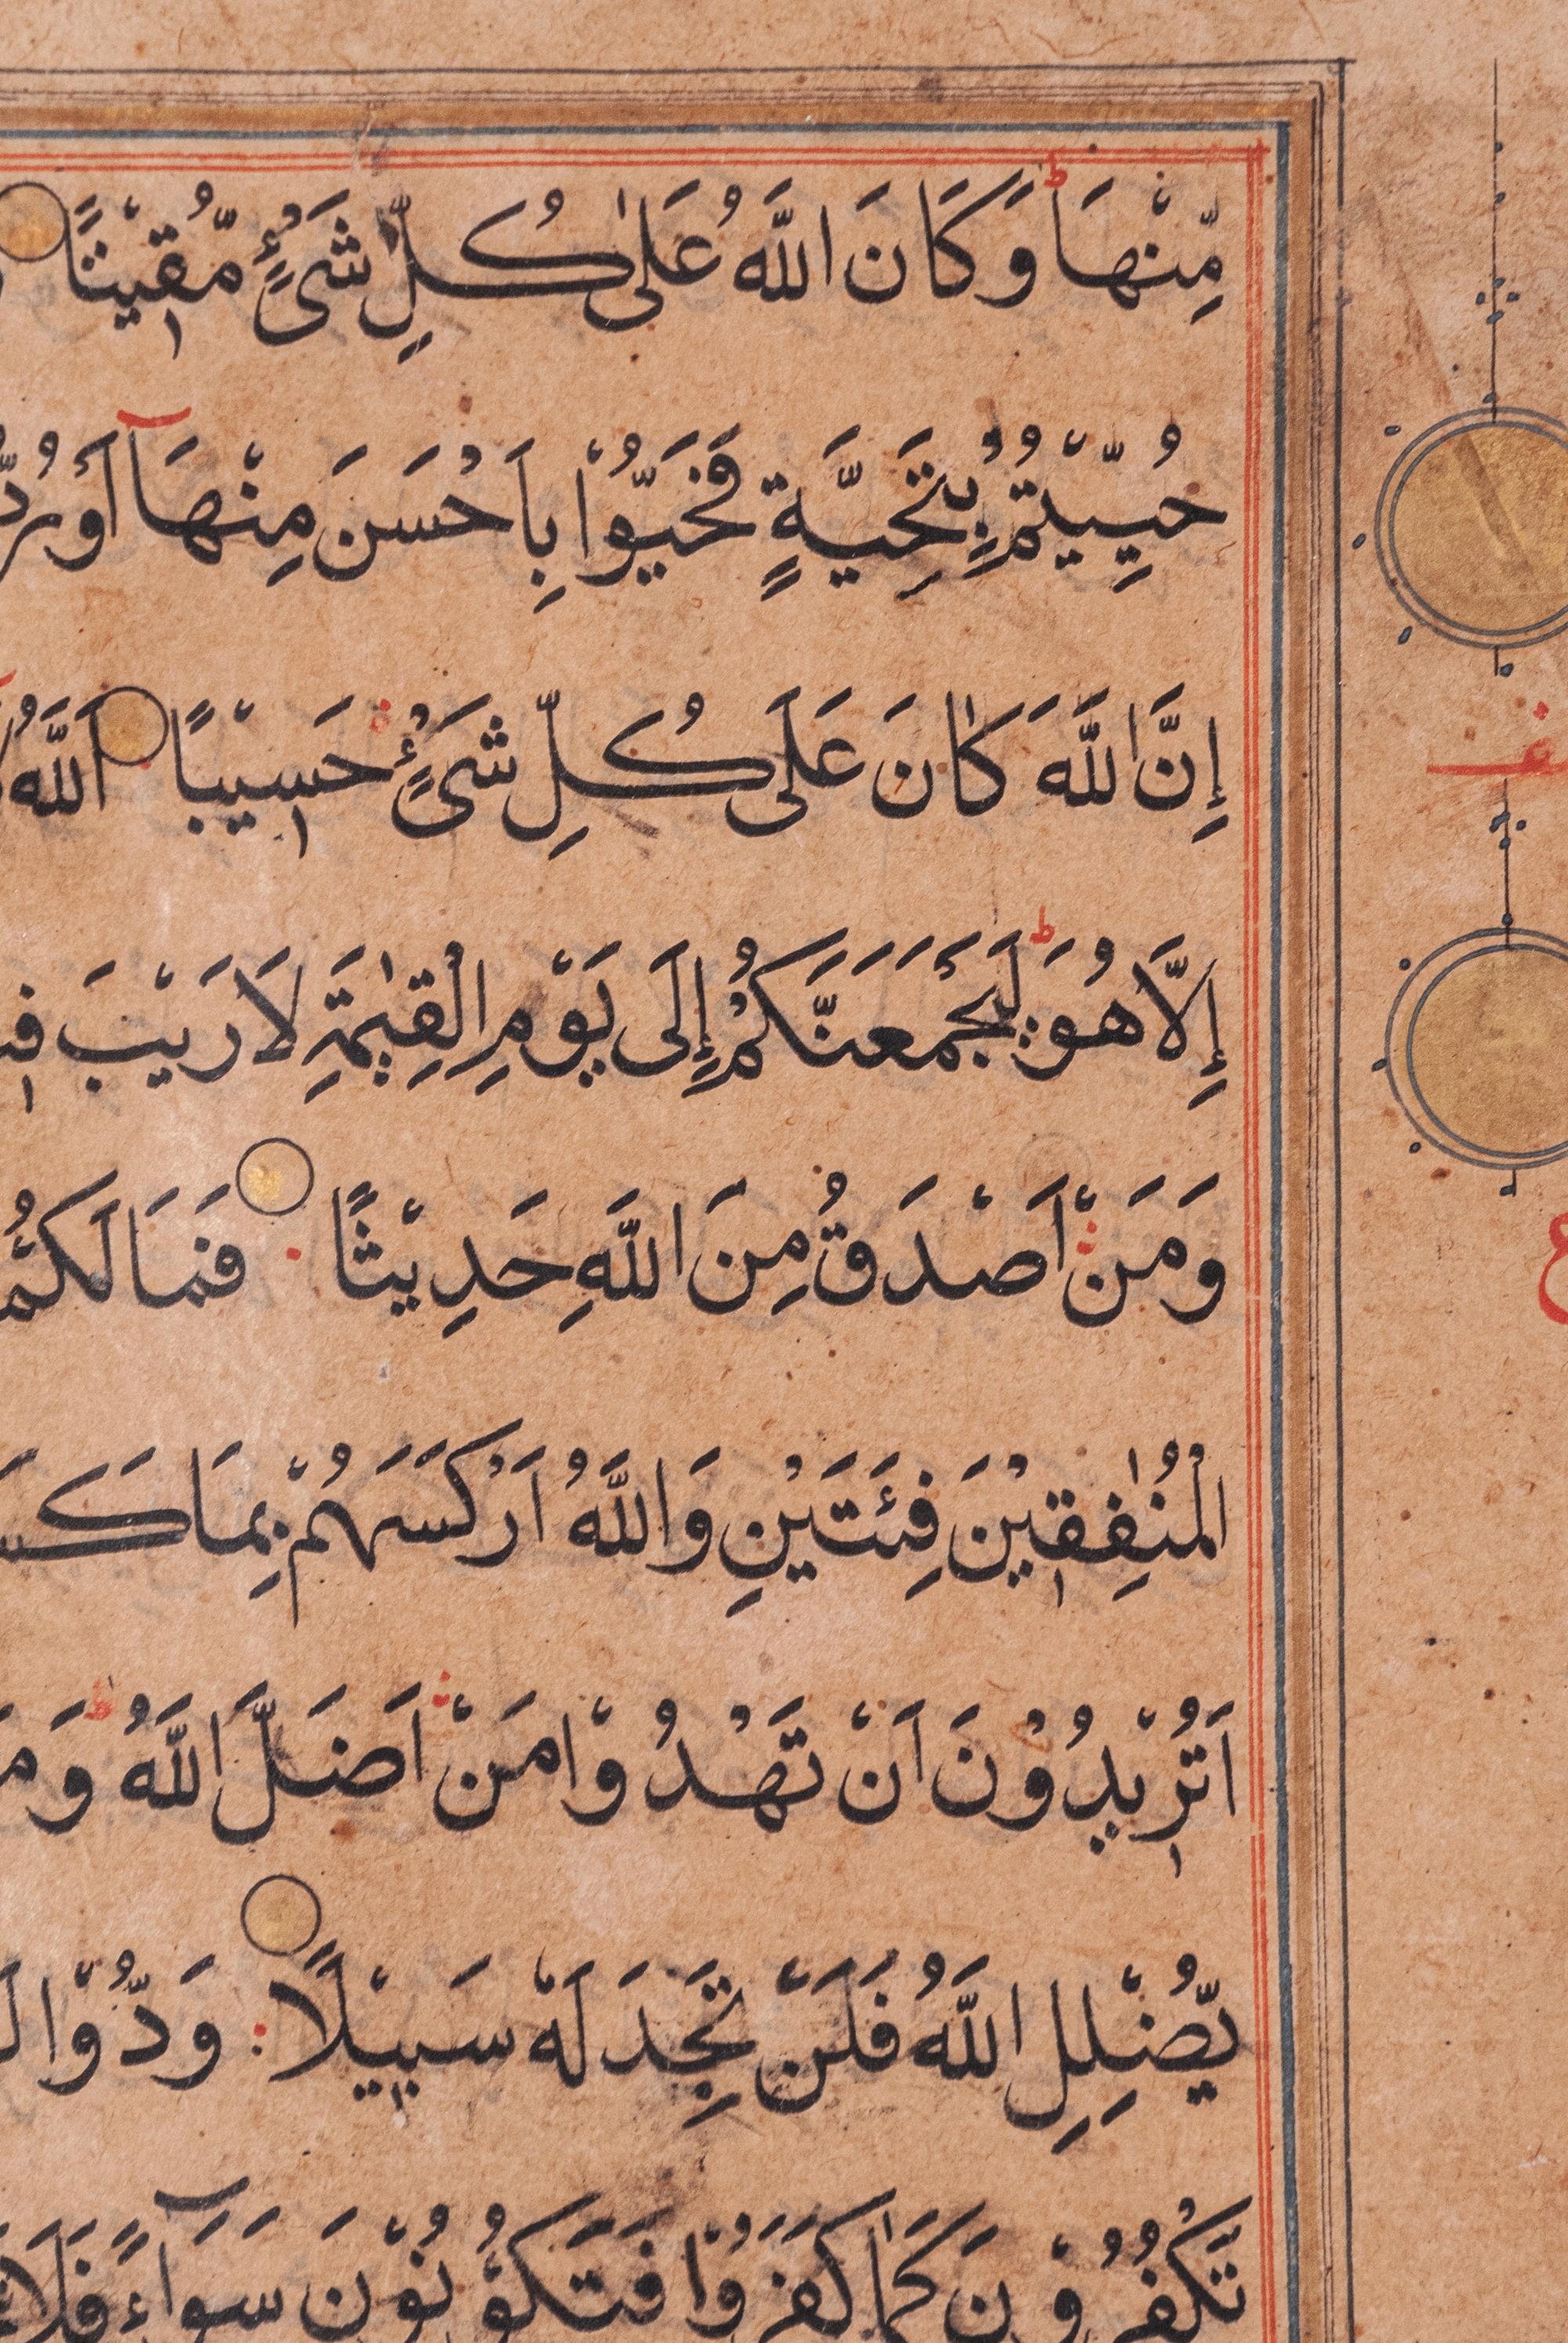 مِّنْهَا ط وَكَانَ اللَّهُ عَلٰى كُلِّ شَىْءٍ مُّقِيْتًا
حُيِّيْتُمْ بِتَحِيَّةٍ فَحَيُّوْا بِاَحْسَنَ مِنْهَا اَوْ رُدُّ
إِنَّ اللَّهَ كَانَ عَلَى كُلِّ شَىْءٍ حَسِيْبًا اَللَّهُ
إِلَّا هُوَ ط لَيَجْمَعَنَّكُمْ إِلَى يَوْمِ الْقِيٰمَةِ لَا رَيْبَ فِيْ
وَمَنْ اَصْدَقُ مِنَ اللَّهِ حَدِيْثًا فَمَا لَكُمْ
الْمُنٰفِقِيْنَ فِئَتَيْنِ وَاللَّهُ اَرْكَسَهُمْ بِمَا كَسَ
اَتُرِيْدُوْنَ اَنْ تَهْدُوْا مَنْ اَضَلَّ اللَّهُ ط وَمَ
يُّضْلِلِ اللَّهُ فَلَنْ تَجِدَ لَهٗ سَبِيْلًا وَدُّوْا لَ
تَكْفُرُوْنَ كَمَا كَفَرُوْا فَتَكُوْنُوْنَ سَوَاءً فَلَا
ع